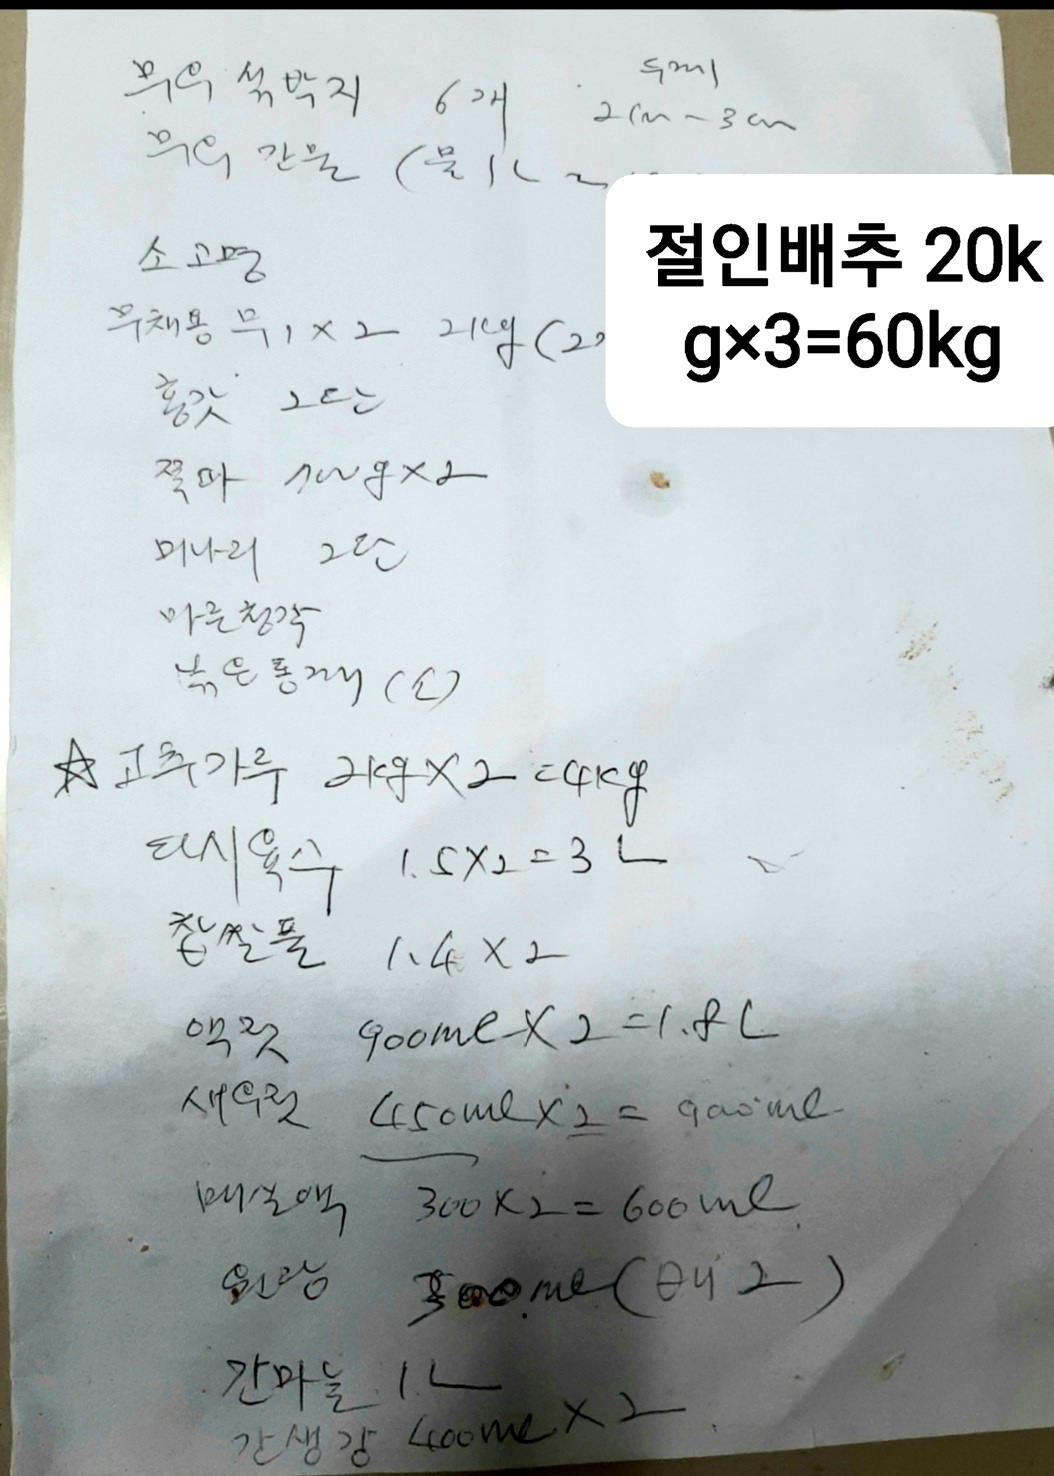 무우 석박지 6개 두께
2cm ~ 3cm
무우 간물 (물 1L
절인배추 20k
g×3=60kg
소 고명
무채용 무 1×2 2kg (2
홍갓 2단
쪽파 700g×2
미나리 2단
마른청각
볶은통깨 (소)
☆고추가루 2kg×2=4kg
다시육수 1.5×2=3L
찹쌀풀 1.4×2
액젓 900ml×2=1.8L
새우젓 450ml×2=900ml
매실액 300×2=600ml
(배 2)
간마늘 1L
간생강 400ml×2